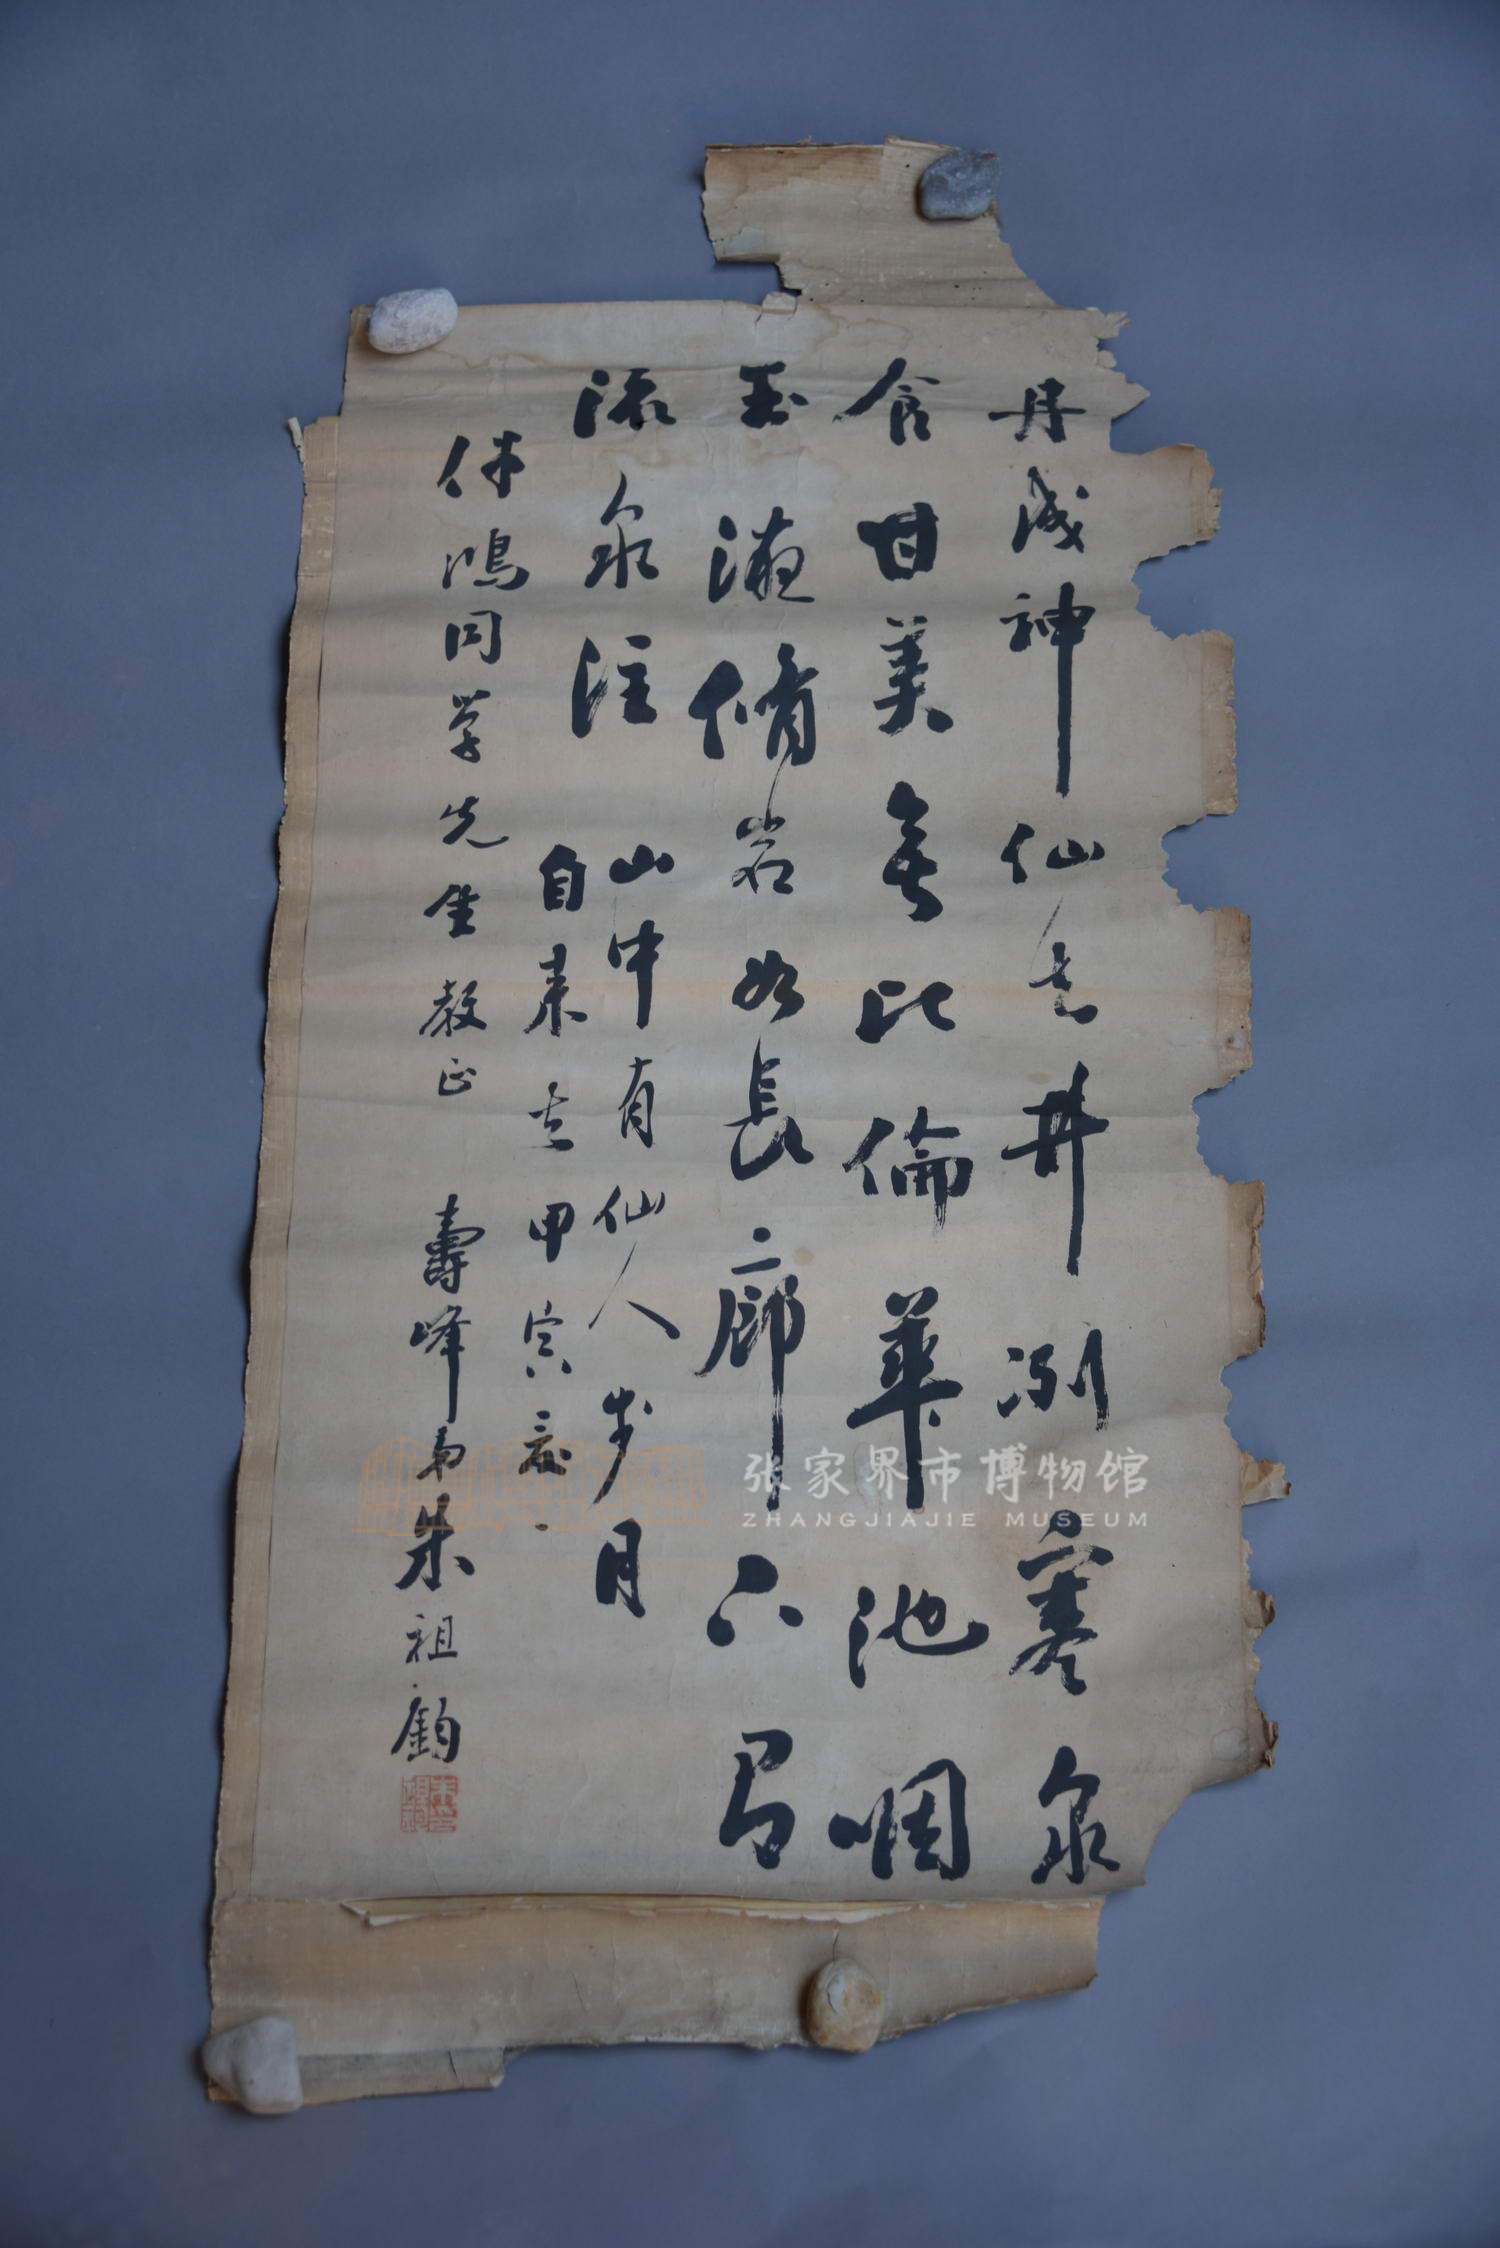 丹成神仙去井冽寒泉
食甘美無比倫華池咽
玉液脩岩如長廊下有
流泉注
山中有仙人步月
自来去甲寅
仲鴻同学先生教正 壽峰弟朱祖鈞
张家界市博物馆
ZHANGJIAJIE MUSEUM